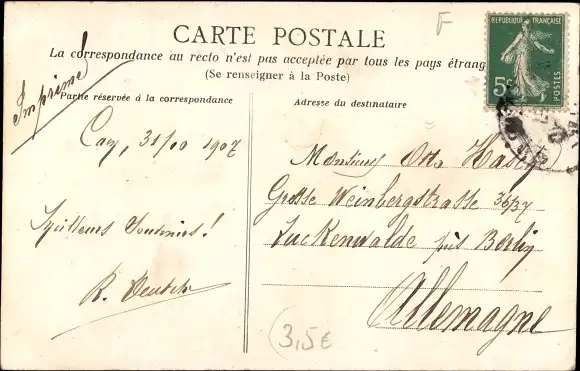 F
CARTE POSTALE
La correspondance au recto n'est pas acceptée par tous les pays étrang
(Se renseigner à la Poste)
REPUBLIQUE FRANÇAISE
5c
POSTES
Imprimé
Partie réservée à la correspondance
Adresse du destinataire
31/10 1907
Meilleurs Souvenirs!
R. Deutsch
Monsieur Otto
Grosse Weinbergstrasse 36/37
Luckenwalde près Berlin
Allemagne
3,5€